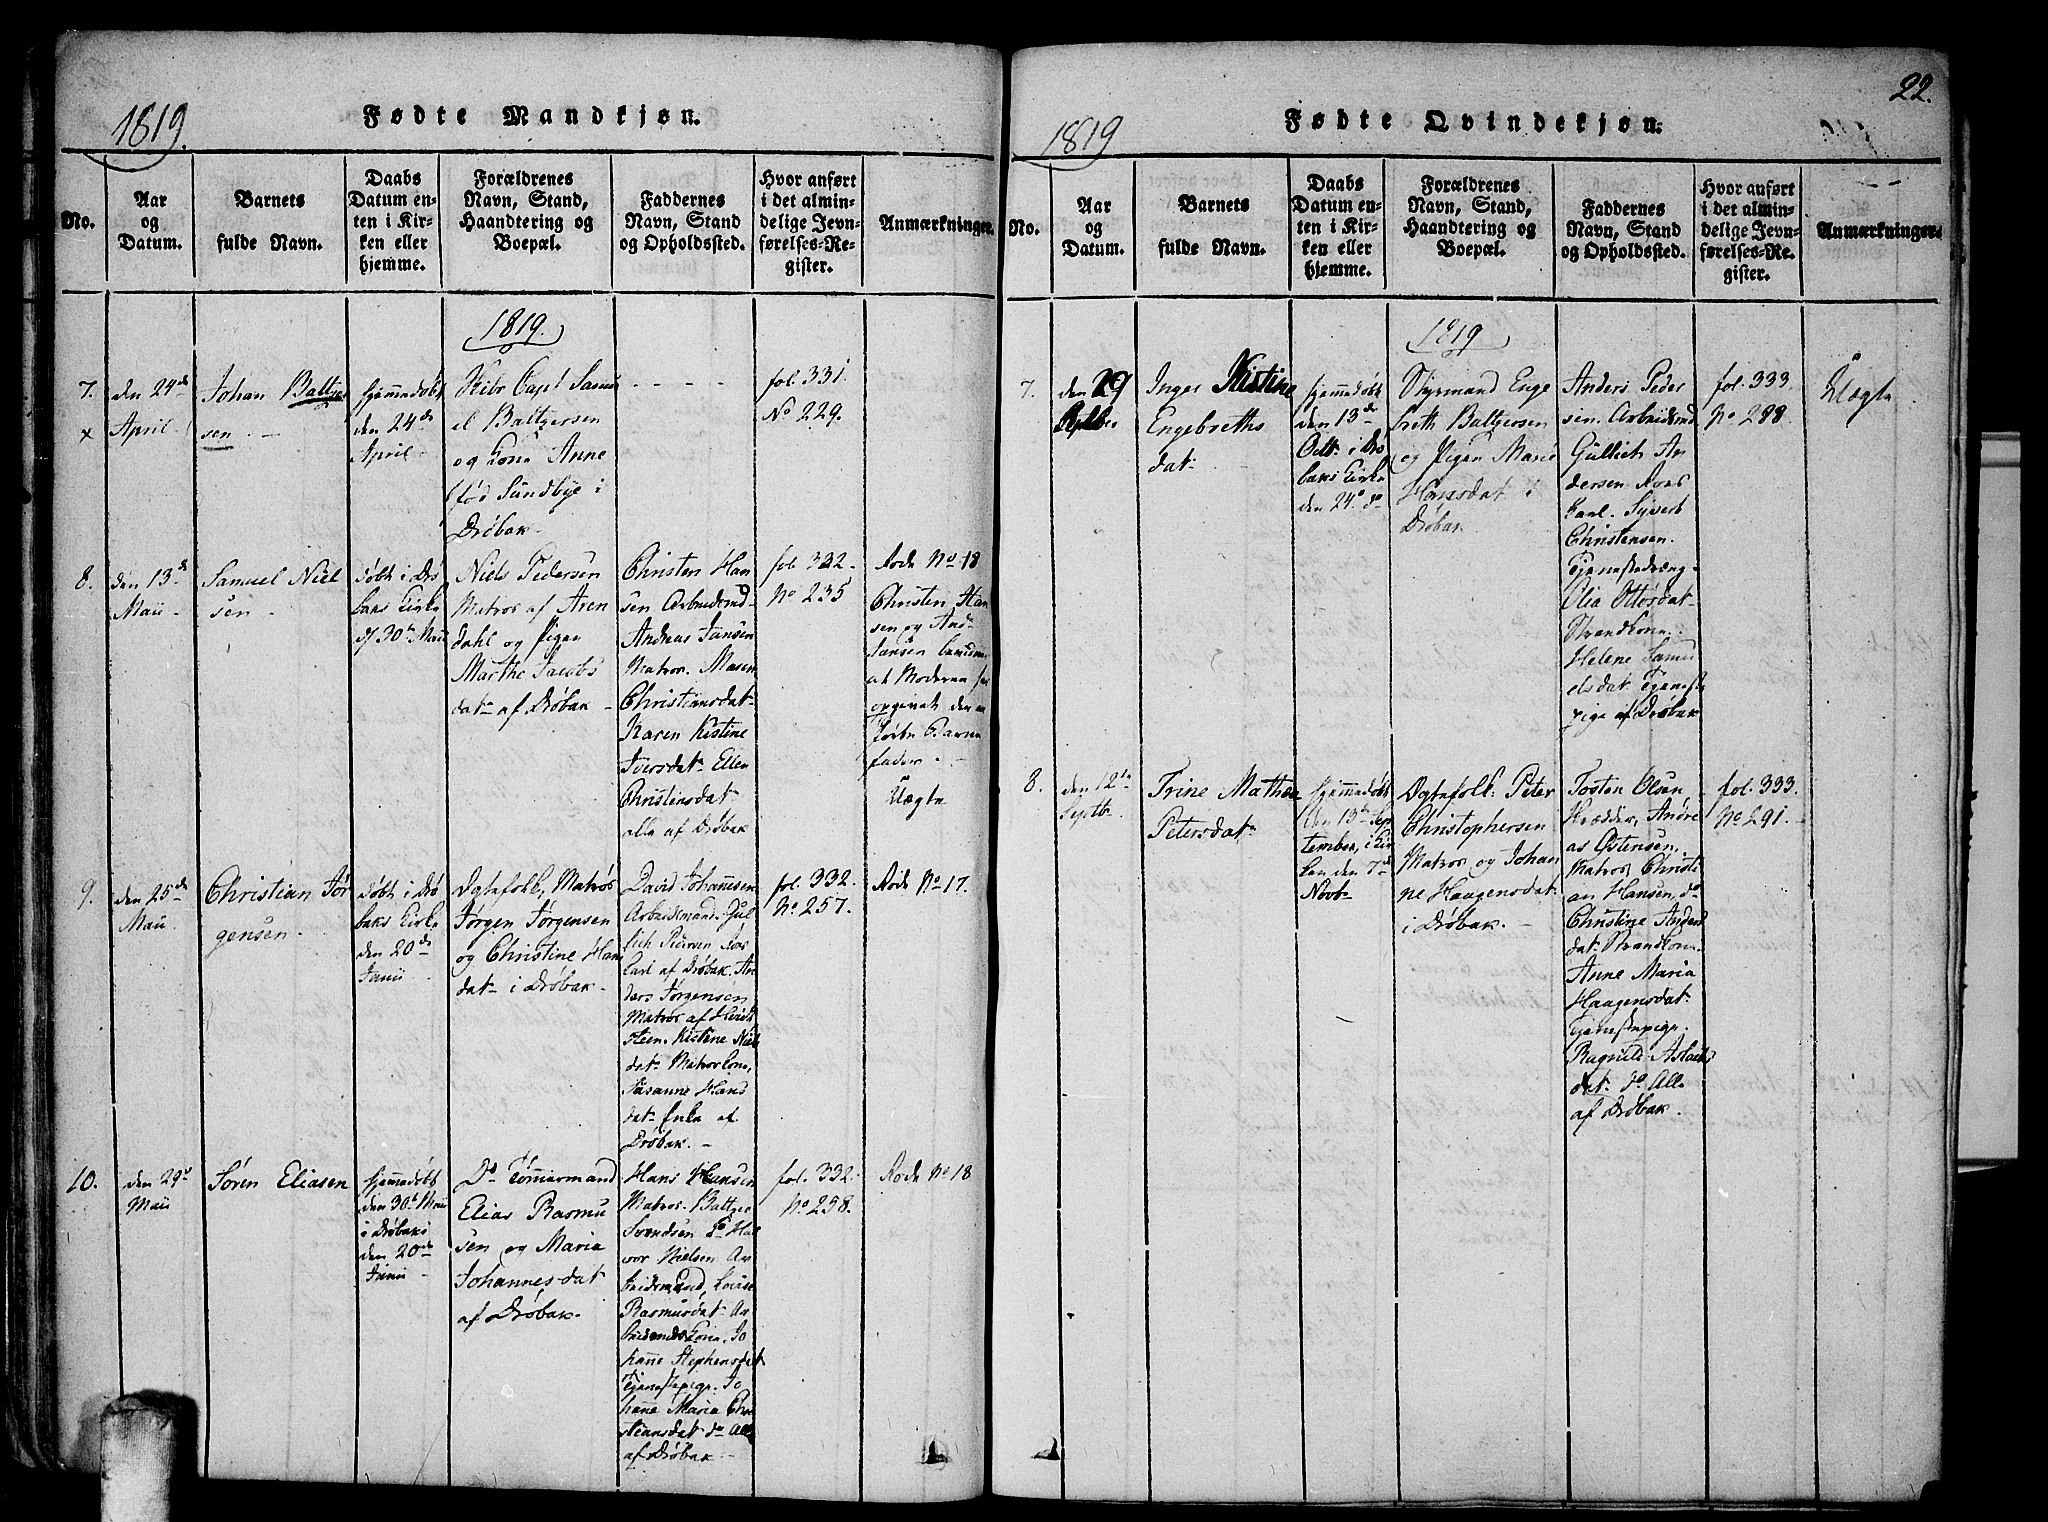 1819.
Fødte Mandkjøn.
No.
Aar
og
Datum.
Barnets
fulde Navn.
Daabs
Datum en-
ten i Kir-
ken eller
hjemme.
Forældrenes
Navn, Stand,
Haandtering og
Boepæl.
Faddernes
Navn, Stand
og Opholdssted.
Hvor anført
i det almin-
delige Jevn-
førelses-Re-
gister.
Anmærkninger.
1819.
7.
x
den 24de
April
Johan Baltzer
sen. -
hjemmedøbt
den 24de
April
Samu
el Baltzersen
og Kone Anne
fød Sundbye i
Drøbak
- - - -
fol. 331.
No 229.
8.
den 13de
Maii
Samuel Niel
sen
døbt i Drø
baks Kirke
d 30te Maii
Niels Pedersen
Matros af Aren
dahl og Pigen
Marthe Jacobs
dat af Drøbak
Christen Han
sen Arbeidsmd
Andreas Jansen
Matros. Maren
Christiansdat
Karen Kistine
Iversdat Ellen
Christensdat
alle af Drøbak
fol 332
No 235
Rode No 18
Christen Han
sen og Andr
Jansen
at Moderen har
opgivet den
Barne
fader. -
Uægte
9.
den 25de
Maii
Christian Jør
gensen.
Døbt i Drø
baks Kirke
den 20de
Junii
Ægtefolk, Matros
Jørgen Jørgensen
og Christine Hans
dat i Drøbak
David Johannesen
Arbeidsmand. Gul
lich Pedersen Roes
karl af Drøbak. An
ders Jørgensen
Matros af Hvidt
steen. Kistine Niels
dat Matroskone,
Susanne Hans
dat Enke af
Drøbak. -
fol. 332.
No 257.
Rode No 17.
10.
den 29de
Maii
Søren Eliasen
hjemmedøbt
den 30te Maii
i Drøbaks
den 20de
Junii
Do Tømmermand
Elias Rasmu
sen og Maria
Johannesdat
af Drøbak.
Hans Hansen
Matros. Baltzer
Svendsen Do Hal
vor Nielsen Ar
beidsmand, Lovise
Rasmusdat Ar
beidsmds Kone. Jo
hanne Stephensdat
Tjenestepige. Jo
hanne Maria Chri
stiansdat do Alle
af Drøbak
fol. 332.
No 258.
Rode No 18
22.
1819
Fødte Qvindekjøn.
No.
Aar
og
Datum.
Barnets
fulde Navn.
Daabs
Datum en-
ten i Kir-
ken eller
hjemme.
Forældrenes
Navn, Stand,
Haandtering og
Boepæl.
Faddernes
Navn, Stand
og Opholdssted.
Hvor anført
i det almin-
delige Jevn-
førelses-Re-
gister.
Anmærkninger.
1819
7.
den 29
Inger Kistine
Engebreths
dat
hjemmedøbt
den 13de
Octb. i Drø
baks Kirke
den 24de do
Styrmand Enge
breth Baltzersen
og Pigen Marie
Hansdat i
Drøbak
Anders Peder
sen. Arbeidsmd
Gullich An
dersen Roes
karl. Syvert
Christensen.
Tjenestedreng
Olia Ottosdat
Strandkone.
Helene Samu
elsdat Tjeneste
pige af Drøbak
fol. 333.
No 288.
Uægte
8.
den 12te
Septb.
Trine Mathea
Petersdat
hjemmedøbt
den 13de Sep
tember, i Kir
ken den 7de
Novb
Ægtefolk. Peter
Christophersen
Matros og Johan
ne Haagensdat
i Drøbak. -
Tosten Olsen
Skrædder, Andre
as Østensen.
Matros Christi
an Hansen, do
Christine Anders
dat Strandkone.
Anne Maria
Haagensdat
Tjenestepige.
Ragnild Aslaks
dat do Alle
af Drøbak.
fol. 333.
No 291.